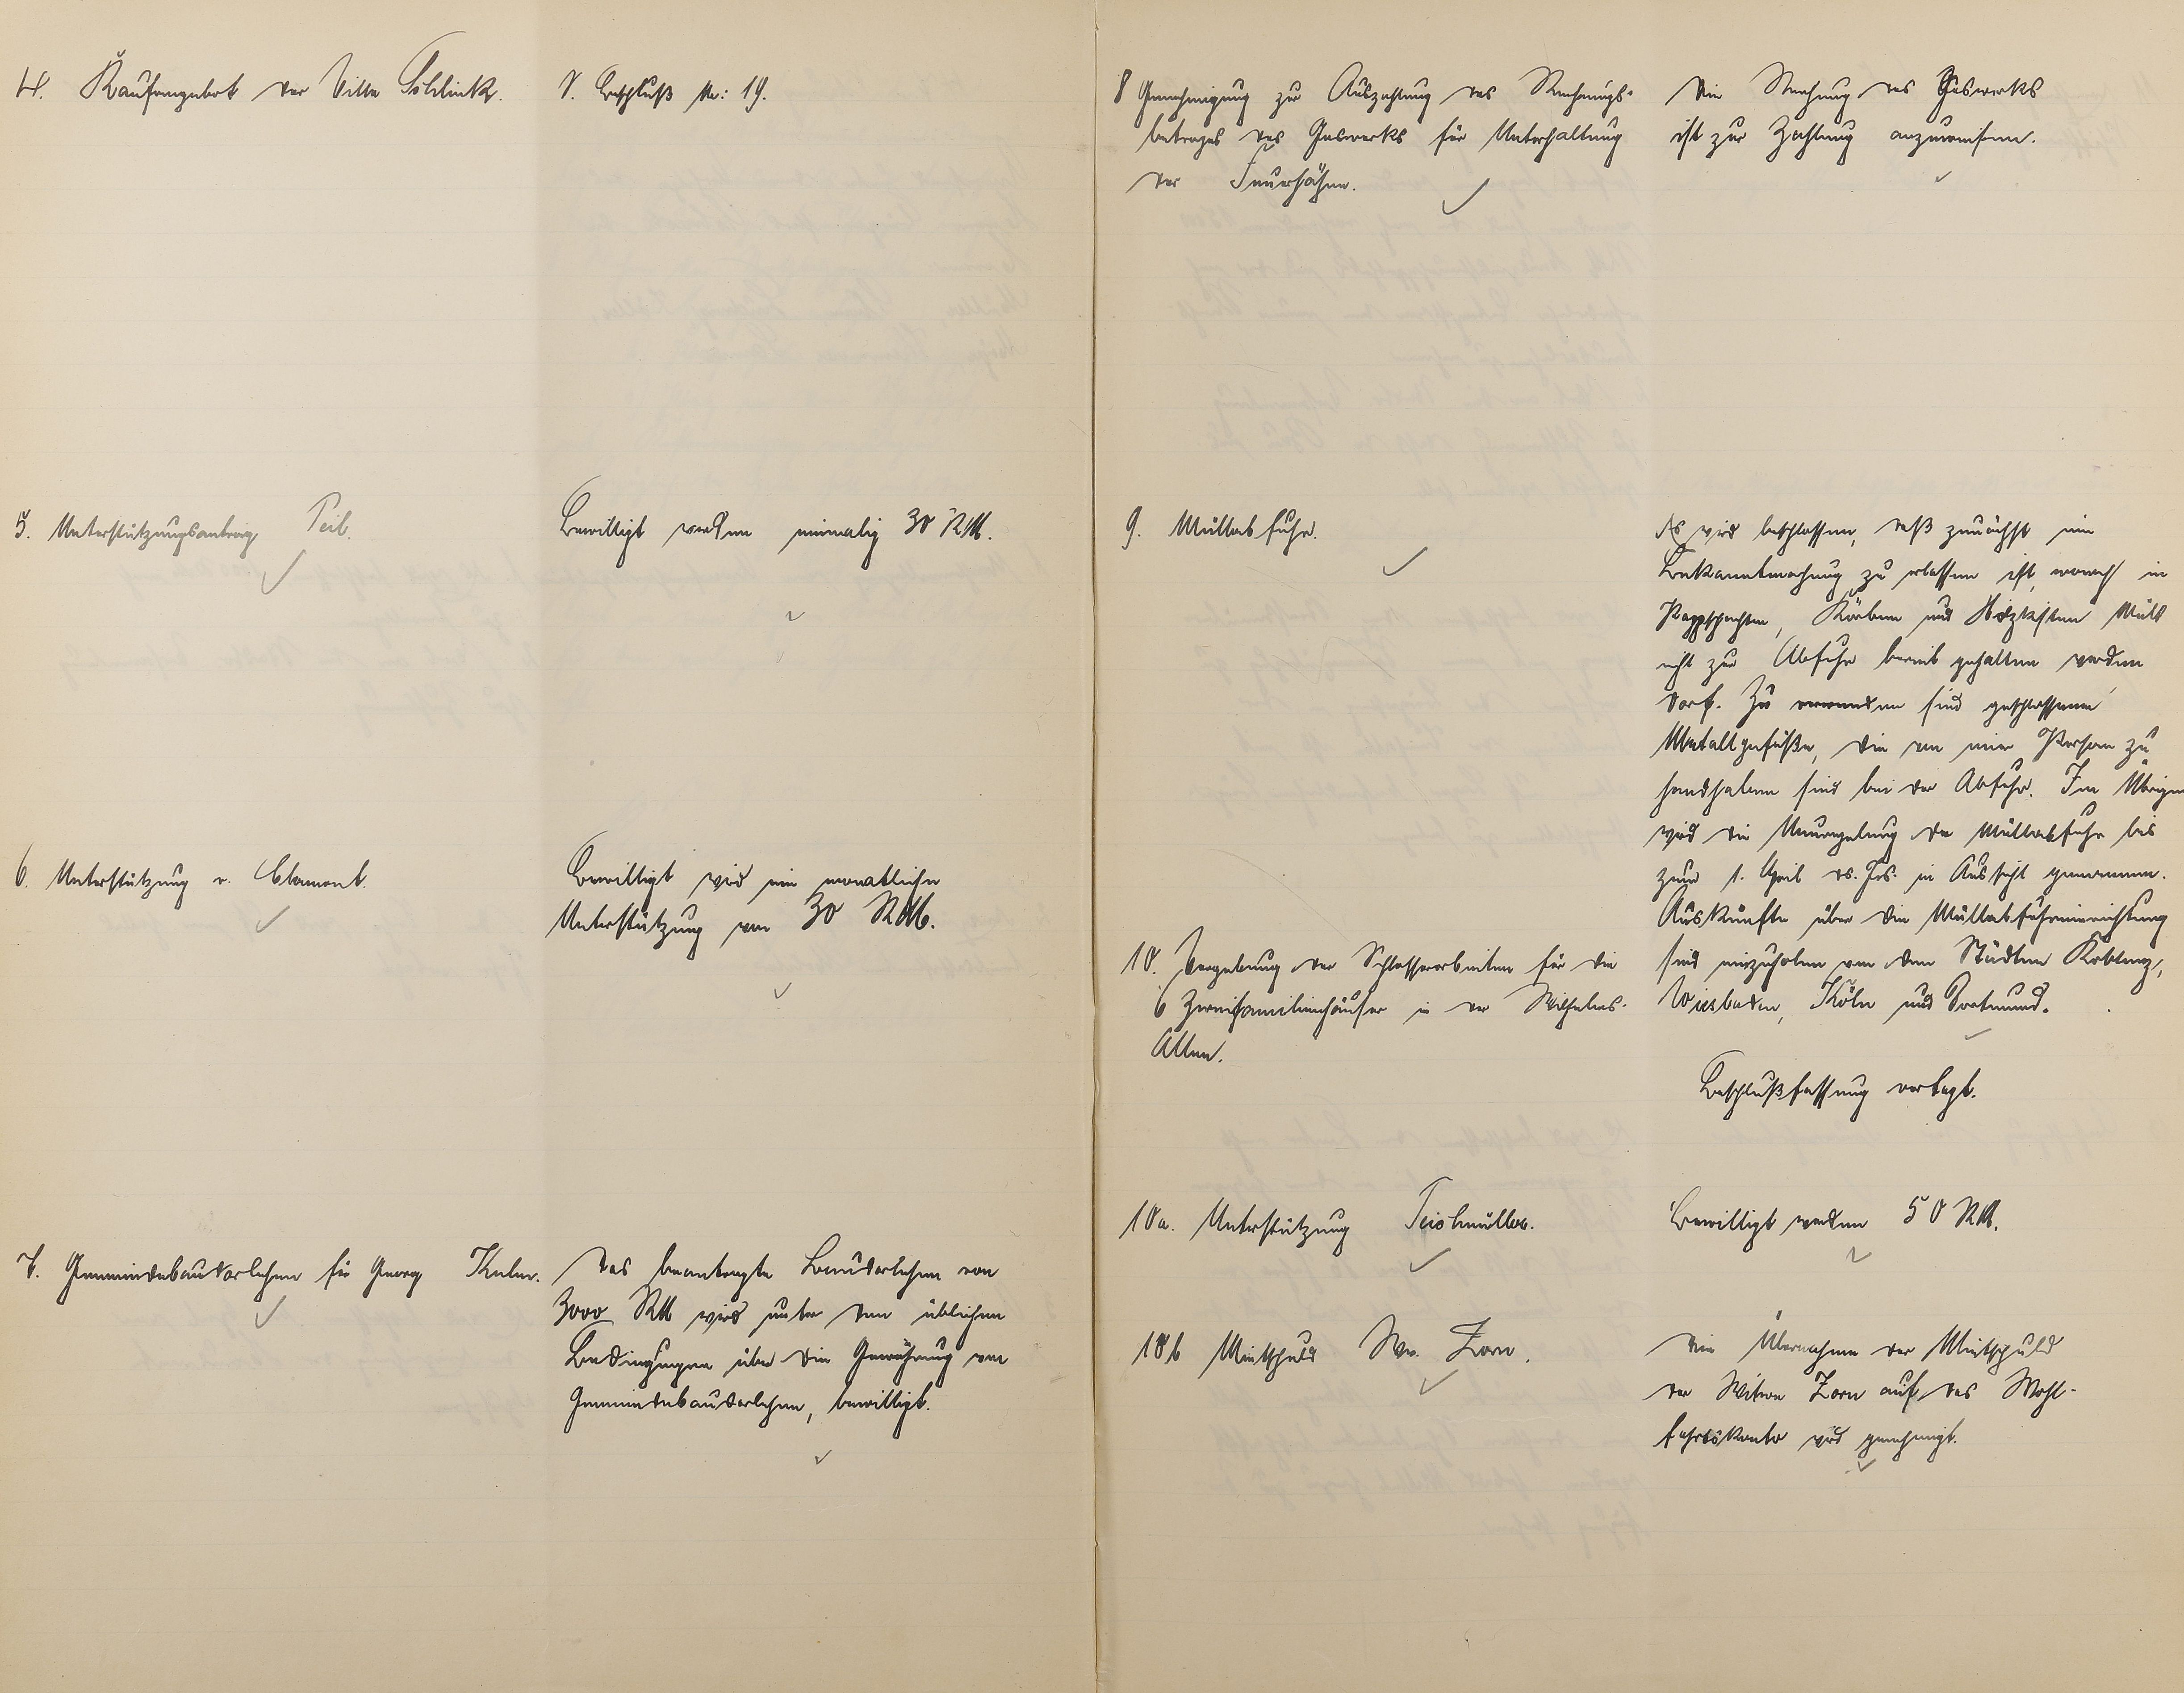 4. Kaufangebot der Villa Schlink.
s. Beschluß Nr: 19.
5. Unterstützungsantrag Peil.
Bewilligt werden einmalig 30 RM.
6. Unterstützung v. Clamont.
Bewilligt wird eine monatliche
Unterstützung von 30 RM.
7. Gemeindebaudarlehen für Georg
Das beantragte Baudarlehen von
3000 RM wird unter den üblichen
Bedingungen über die Gewährung von
Gemeindebaudarlehen, bewilligt.
8 Genehmigung zur Auszahlung des Rechnungs-
betrages des Gaswerks für Unterhaltung
der Feuerhähne.
Die Rechnung des Gaswerks
ist zur Zahlung anzuweisen.
9. Müllabfuhr.
Es wird beschlossen, daß zunächst eine
Bekanntmachung zu erlassen ist, wonach in
Pappschachteln, Körben und Holzkisten Müll
nicht zur Abfuhr bereit gehalten werden
darf. Zu verwenden sind geschlossene
Metallgefäße, die von einer Person zu
handhaben sind bei der Abfuhr. Im Übrigen
wird die Neuregelung der Müllabfuhr bis
zum 1. April ds. Js. in Aussicht genommen.
Auskünfte über die Müllabfuhreinrichtung
sind einzuholen von den Städten Koblenz,
Wiesbaden, Köln und Dortmund.
10. Vergebung der Schlosserarbeiten für die
6 Zweifamilienhäuser in der Wilhelms-
Allee.
Beschlußfassung vertagt.
10a. Unterstützung Teichmüller.
Bewilligt werden 50 RM.
10b Mietschuld Ww. Zorn.
Die Übernahme der Mietschuld
der Witwe Zorn auf das Wohl-
fahrtskonto wird genehmigt.